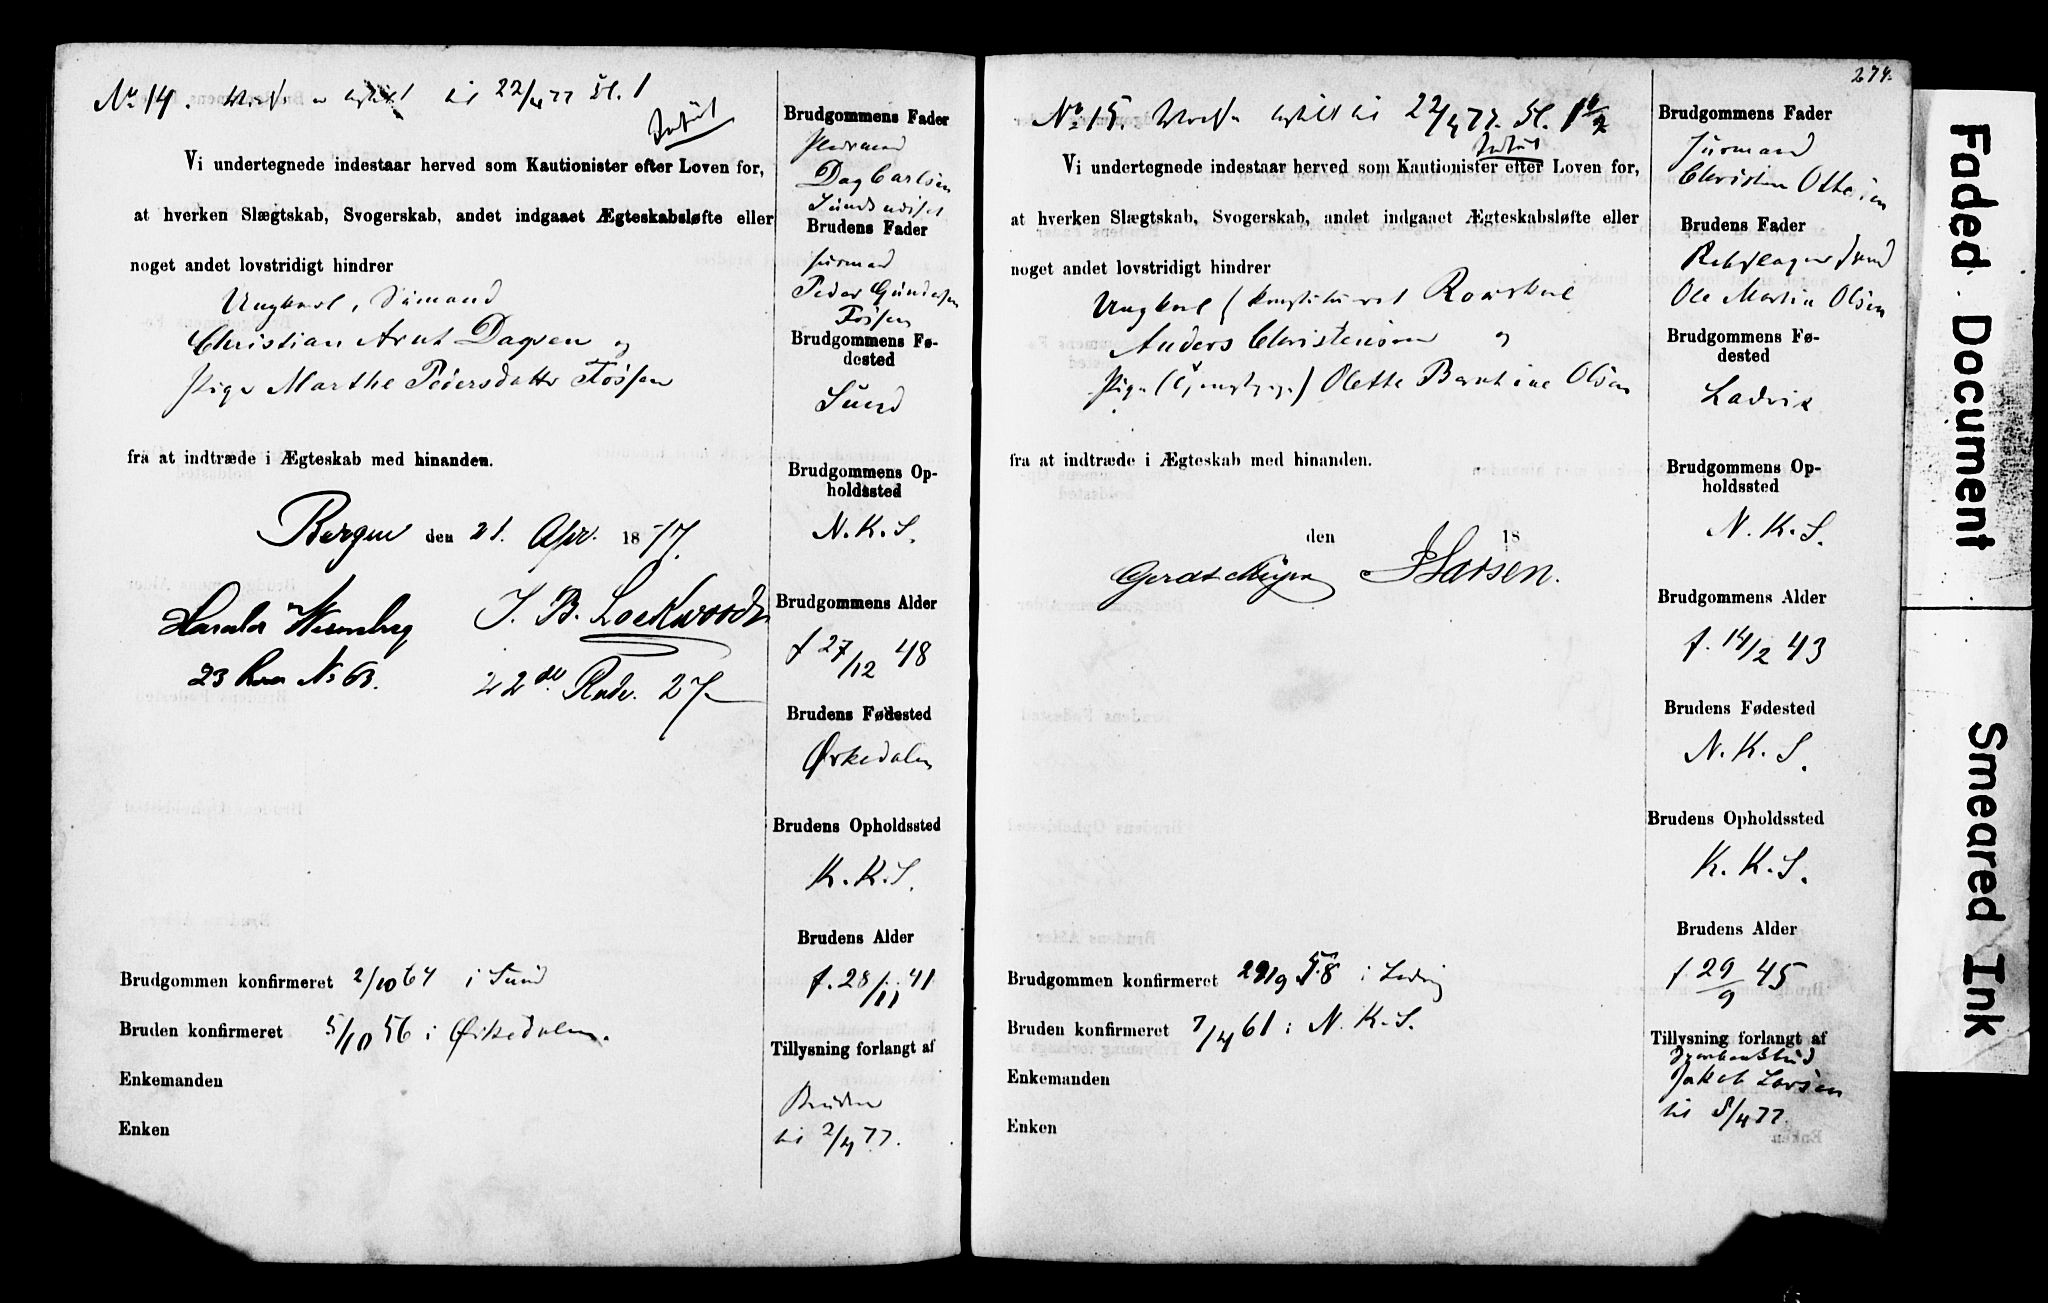 No 14. til 22/4 77 Kl. 1
Vi undertegnede indestaar herved som Kautionister efter Loven for,
at hverken Slægtskab, Svogerskab, andet indgaaet Ægteskabsløfte eller
noget andet lovstridigt hindrer
Ungkarl, Sömand
Christian Arnt Dagsen og
Pige Marthe Pedersdatter Fossen
fra at indtræde i Ægteskab med hinanden.
Bergen den 21. Apr. 1877.
J. B. Lockwoodt
23 Rode No 63.
22de Rode. 27
Brudgommen konfirmeret 2/10 64 i Sund
Bruden konfirmeret 5/10 56 i Ørkedalen.
Enkemanden
Enken
Brudgommens Fader
Dag Carlsen
Brudens Fader
Peder
Fossen
Brudgommens Fø-
dested
Sund
Brudgommens Op-
holdssted
N. K. S.
Brudgommens Alder
f 27/12 48
Brudens Fødested
Ørkedalen
Brudens Opholdssted
K. K. S.
Brudens Alder
f. 28/11 41
Tillysning forlangt af
Bruden
til 2/4 77.
274.
No 15. til 22/4 77. Kl. 1 1/2
Vi undertegnede indestaar herved som Kautionister efter Loven for,
at hverken Slægtskab, Svogerskab, andet indgaaet Ægteskabsløfte eller
noget andet lovstridigt hindrer
Ungkarl
Anders Christensen og
Pige Olette Berntine Olsen
fra at indtræde i Ægteskab med hinanden.
den 18
Gerdt Meyer J Larsen.
Brudgommen konfirmeret 29/9 58 i Ladvig
Bruden konfirmeret 7/4 61 i N. K. S.
Enkemanden
Enken
Brudgommens Fader
Christen
Brudens Fader
Ole Martin Olsen
Brudgommens Fø-
dested
Ladvik
Brudgommens Op-
holdssted
N. K. S.
Brudgommens Alder
f. 14/2 43
Brudens Fødested
N. K. S.
Brudens Opholdssted
K. K. S.
Brudens Alder
f. 29/9 45
Tillysning forlangt af
Jakob Larsen
til 8/4 77.
Faded Document
Smeared Ink